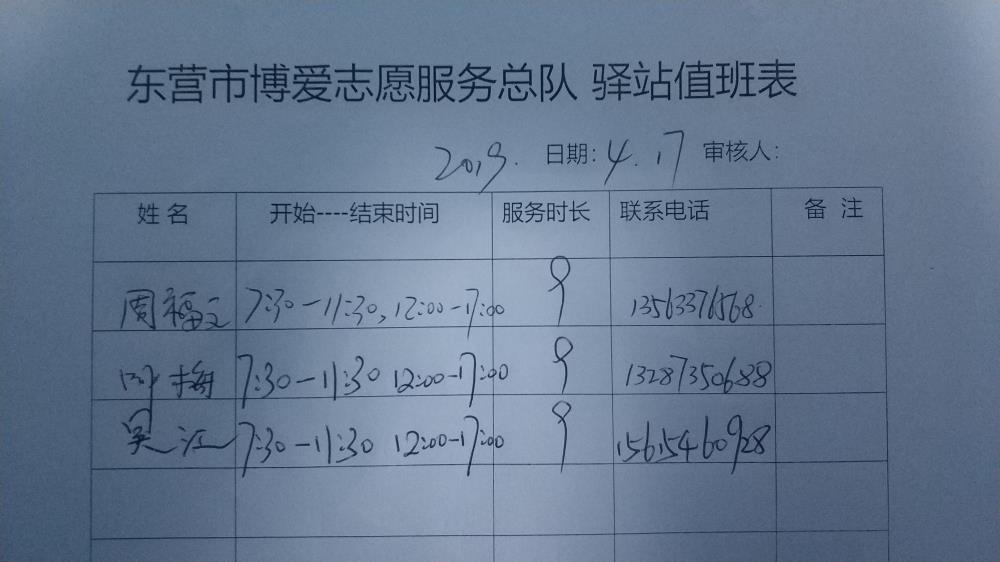 东营市博爱志愿服务总队 驿站值班表
2019. 日期: 4.17 审核人:
姓名 开始----结束时间 服务时长 联系电话 备 注
周福文 7:30-11:30, 12:00-17:00 9 13563376568
梅 7:30-11:30 12:00-17:00 9 13287350688
吴江 7:30-11:30 12:00-17:00 9 15615460928